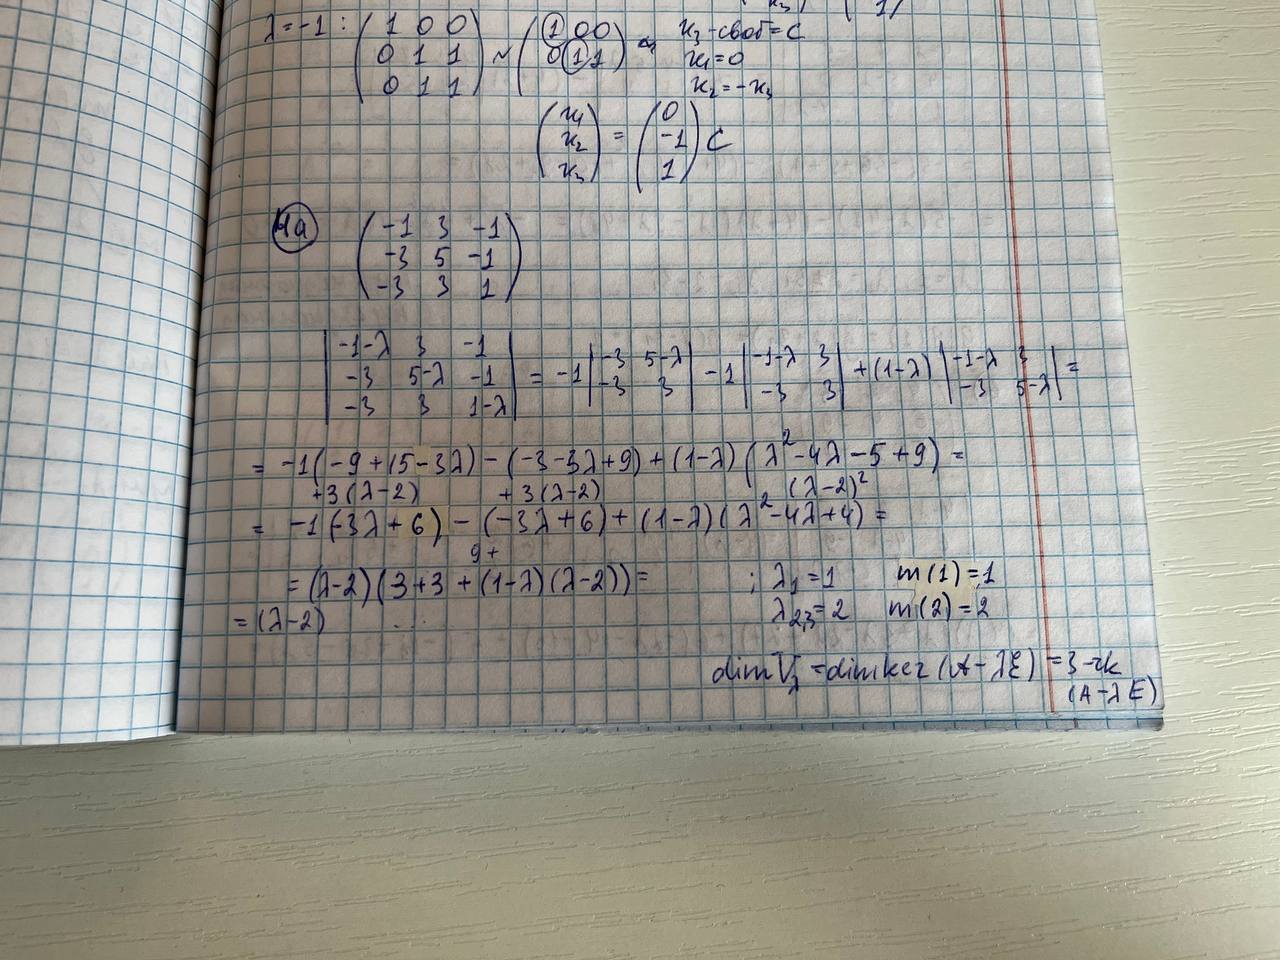 λ=-1 : (1 0 0; 0 1 1; 0 1 1) ~ (1 0 0; 0 1 1) x₃-своб=C
x₁=0
x₂=-x₃
(x₁; x₂; x₃) = (0; -1; 1) C
4a (-1 3 -1; -3 5 -1; -3 3 1)
|-1-λ 3 -1; -3 5-λ -1; -3 3 1-λ| = -1 |-3 5-λ; -3 3| -1 |-1-λ 3; -3 3| +(1-λ) |-1-λ 3; -3 5-λ| =
= -1(-9+(5-3λ) - (-3-3λ+9) + (1-λ) (λ²-4λ-5+9) =
+3(λ-2) +3(λ-2) (λ-2)²
= -1(-3λ+6) - (-3λ+6) + (1-λ)(λ²-4λ+4) =
9+
= (λ-2)(3+3+(1-λ)(λ-2)) = ; λ₁=1 m(1)=1
= (λ-2) ... λ₂,₃=2 m(2)=2
dim V_λ = dim ker (A-λE) = 3-rk
(A-λE)